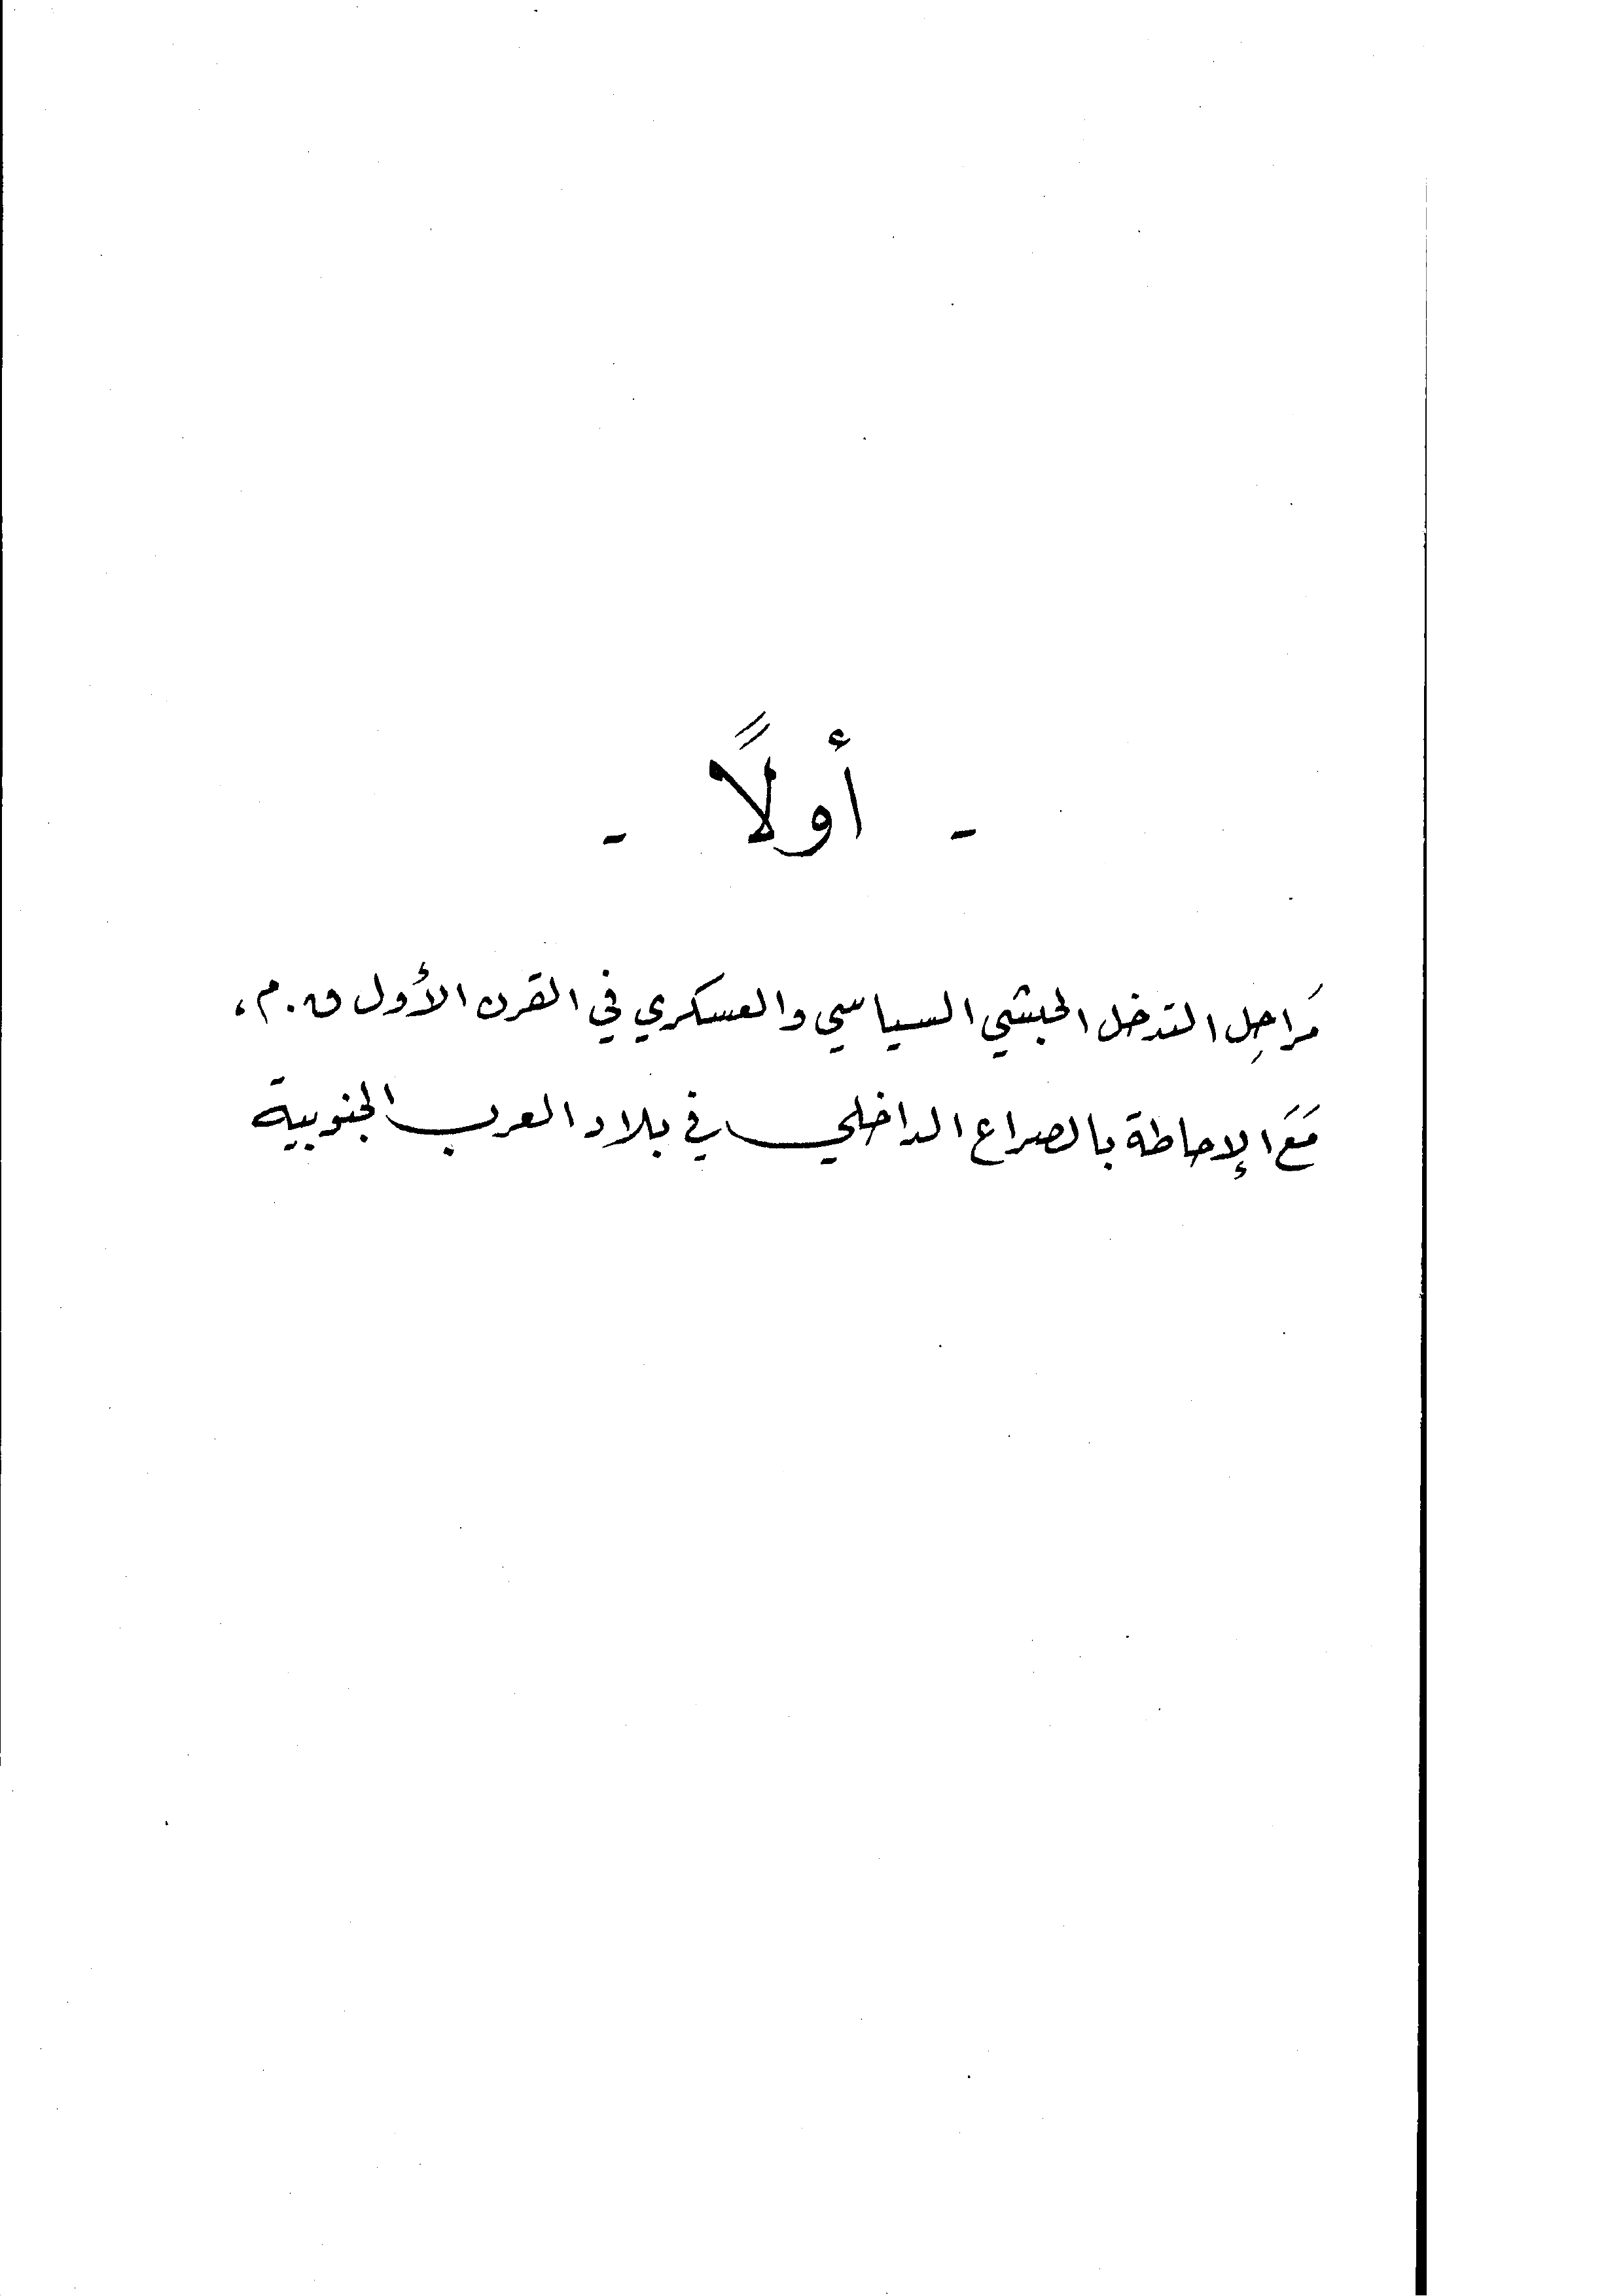 - أولاً -
مَراحِل التدخل الحبشي السياسي والعسكري في القرن الأول ق.م،
مَعَ الإحاطة بالصراع الداخلي في بلاد العرب الجنوبية